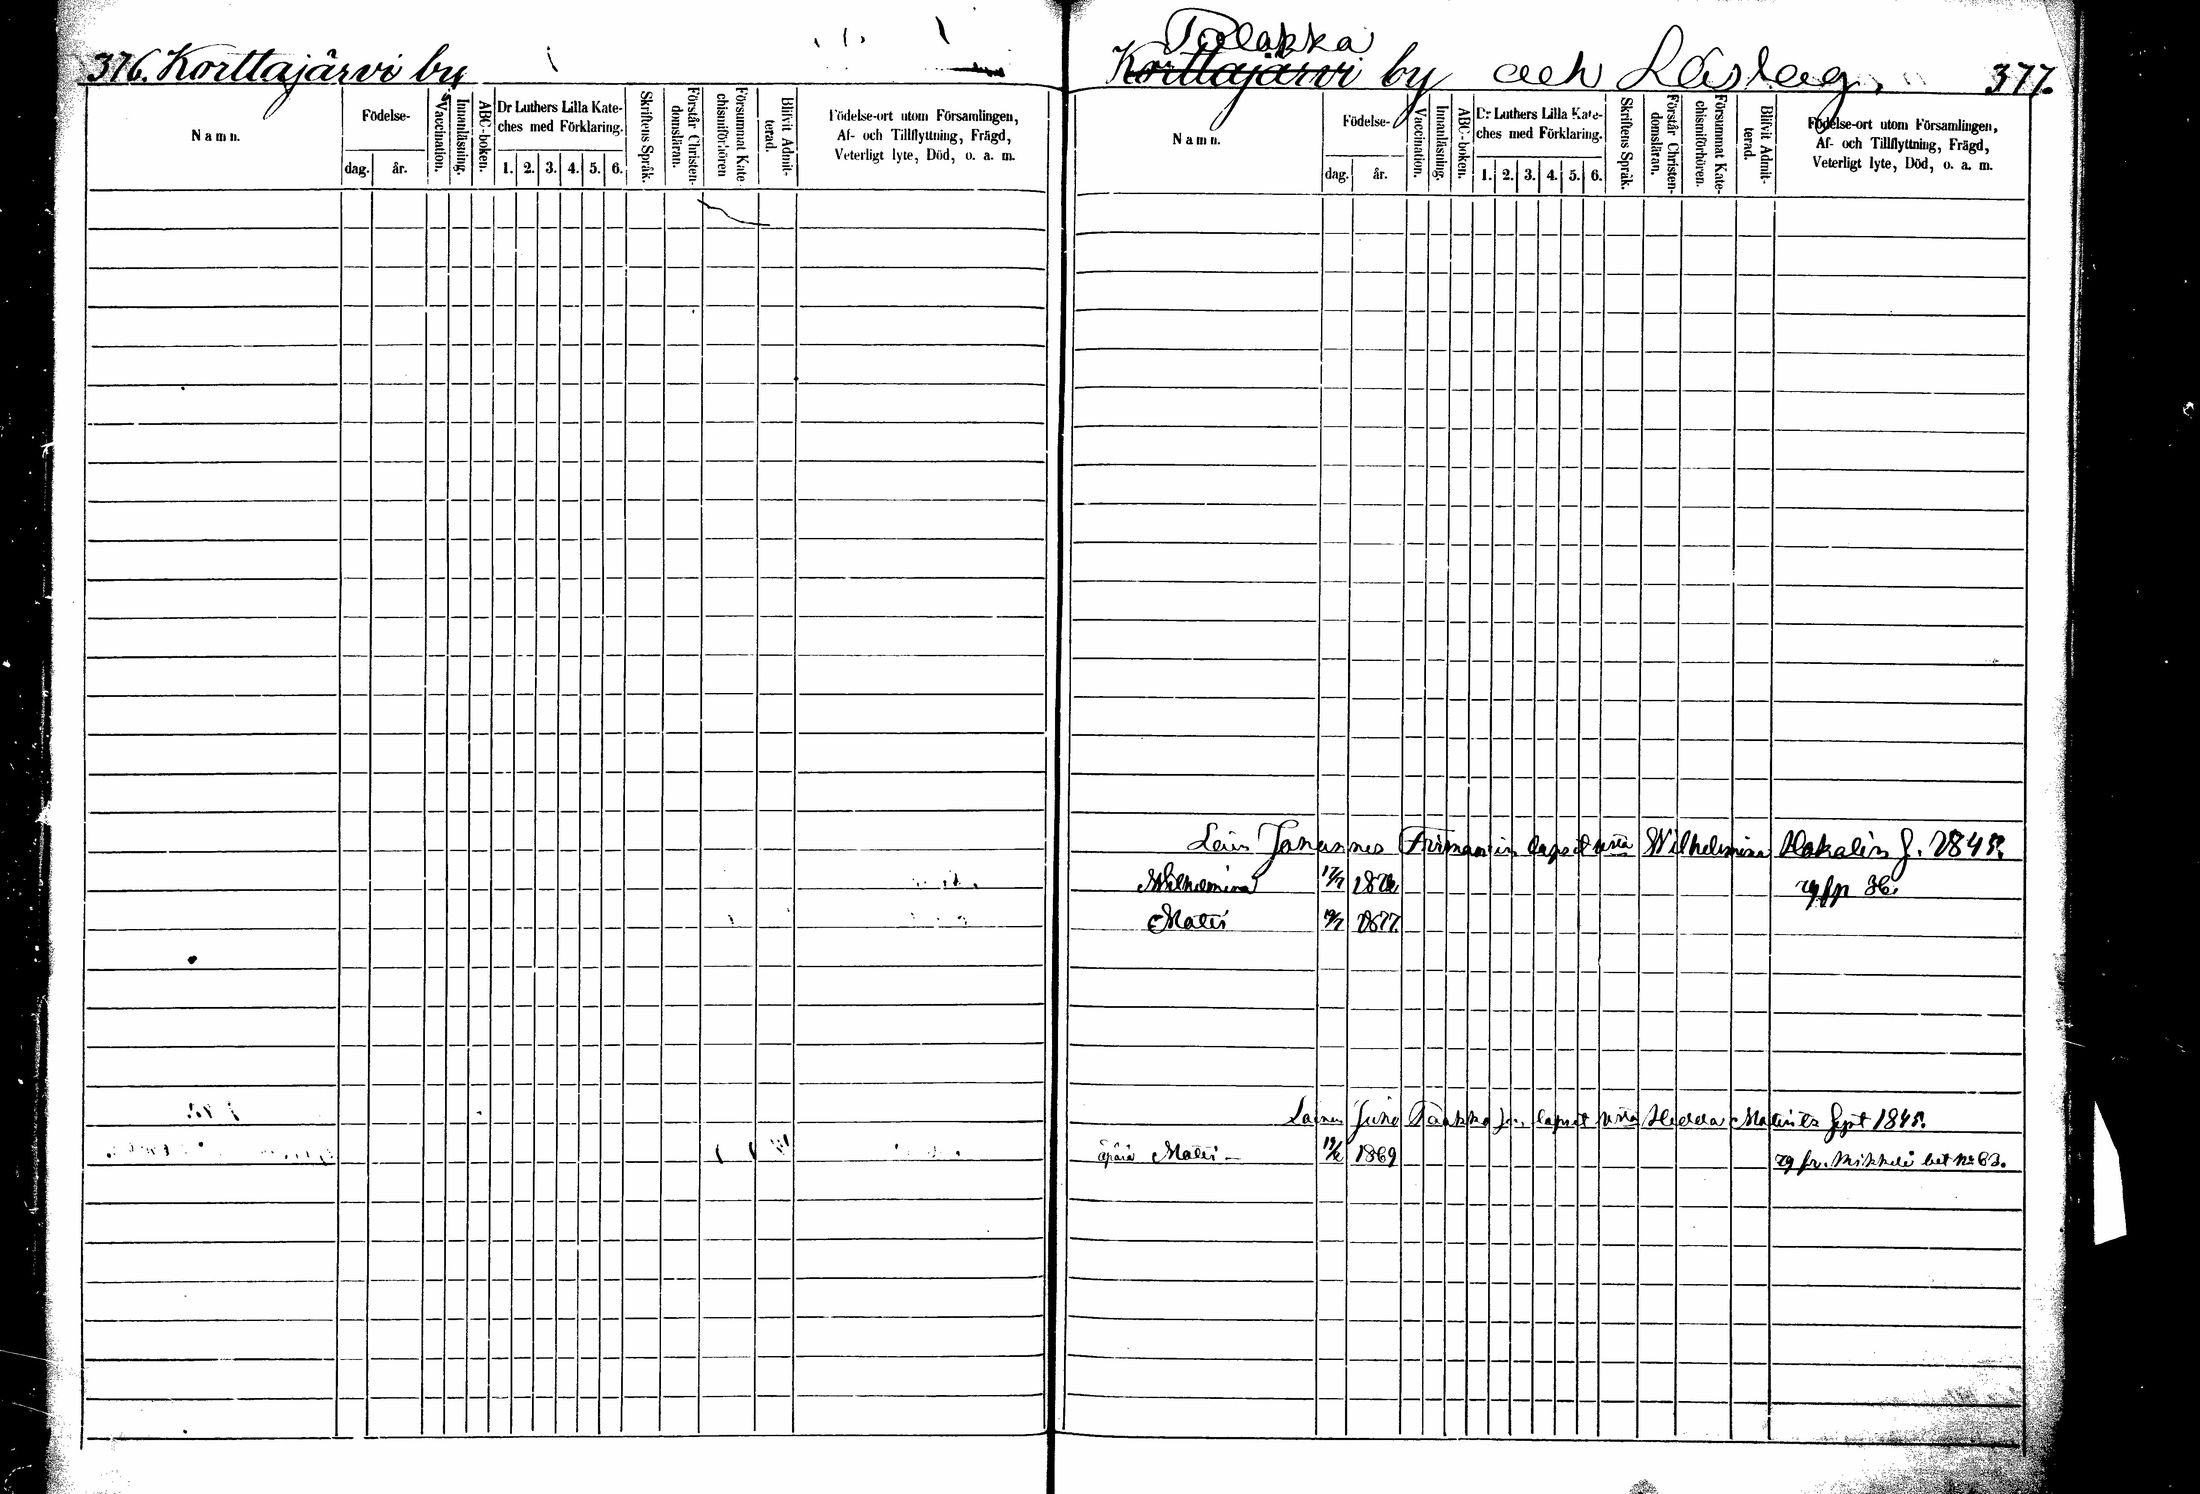 376. Korttajärvi by
Namn.
Födelse-
dag. år.
Vaccination.
Innanläsning.
ABC-boken.
Dr Luthers Lilla Kate-
ches med Förklaring.
1. 2. 3. 4. 5. 6.
Skriftens Språk.
Förstår Christen-
domsläran.
Försummat Kate-
chismiförhören
Blifvit Admit-
terad.
Födelse-ort utom Församlingen,
Af- och Tillflyttning, Frägd,
Veterligt lyte, Död, o. a. m.
Palokka
Korttajärvi by och Läslag. 377.
Namn.
Födelse-
dag. år.
Vaccination.
Innanläsning.
ABC-boken.
Dr Luthers Lilla Kate-
ches med Förklaring.
1. 2. 3. 4. 5. 6.
Skriftens Språk.
Förstår Christen-
domsläran.
Försummat Kate-
chismiförhören.
Blifvit Admit-
terad.
Födelse-ort utom Församlingen,
Af- och Tillflyttning, Frägd,
Veterligt lyte, Död, o. a. m.
Johannes lapset Wilhelmina
Wilhelmina
Matti 1877.
Juho lapset Hedda 1845.
äpärä Matti 1869 fr. Mikkeli bet No 63.